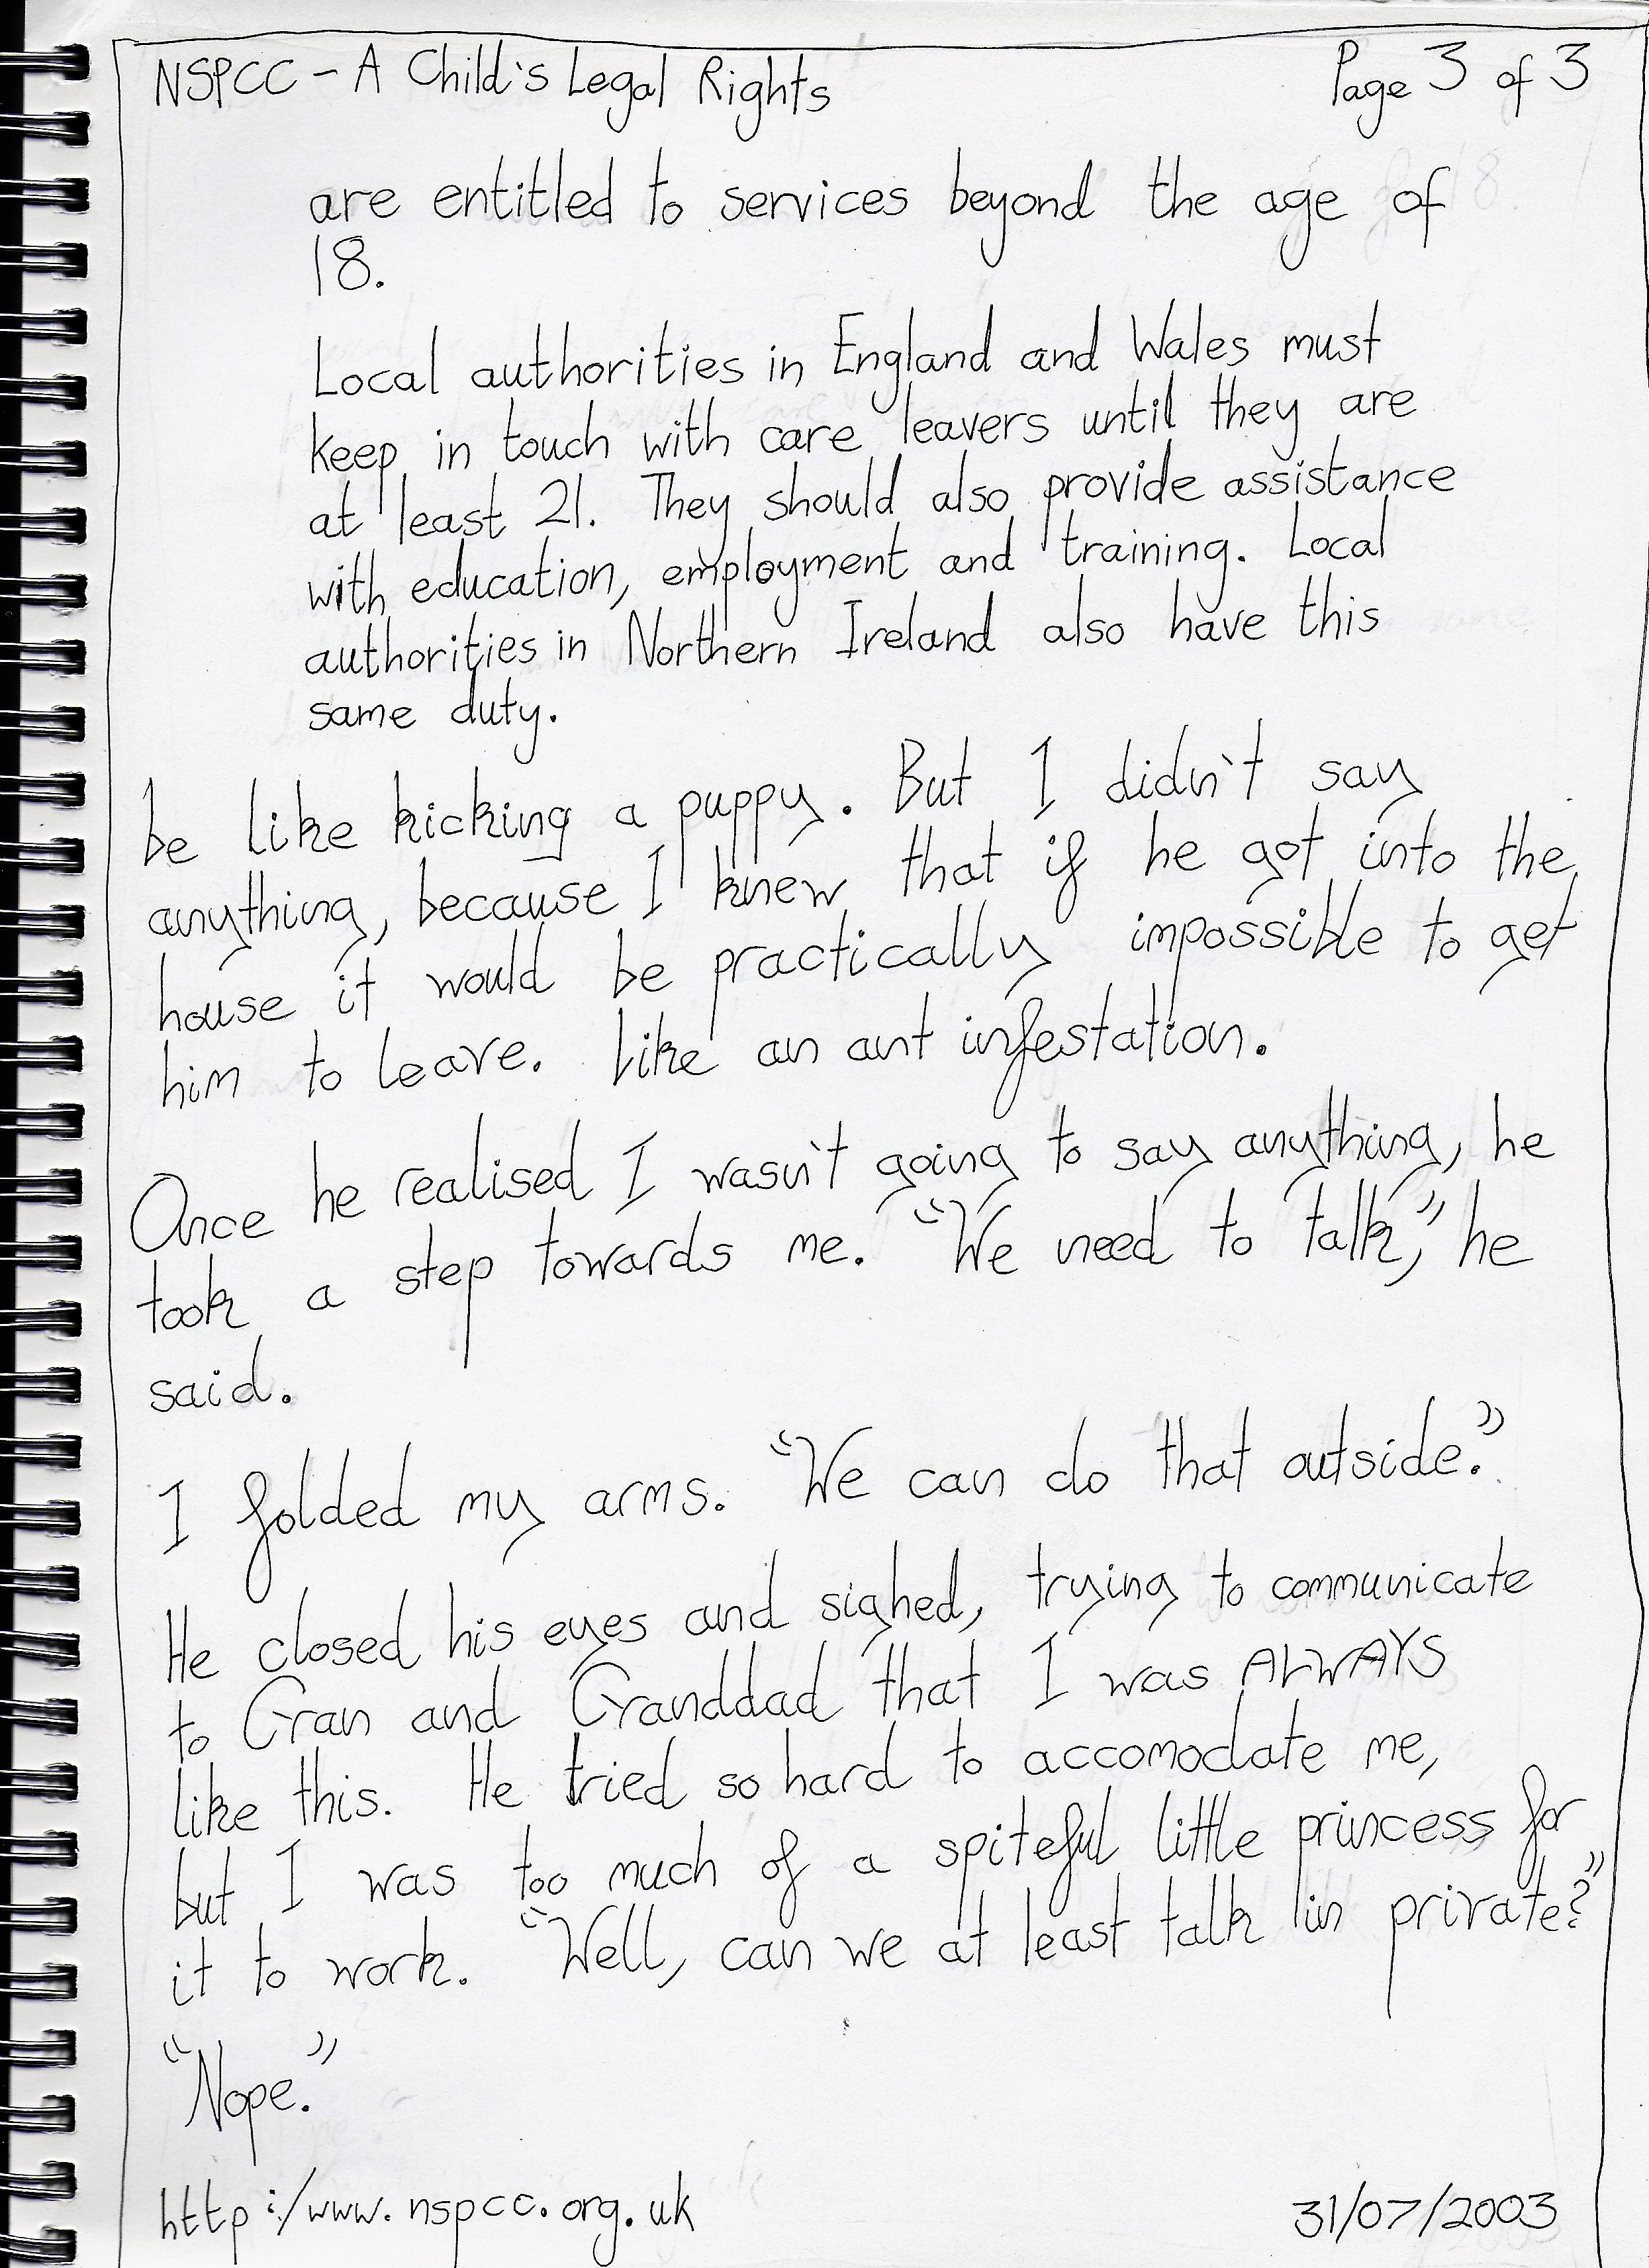 NSPCC - A Child's Legal Rights Page 3 of 3
are entitled to services beyond the age of
18.
Local authorities in England and Wales must
keep in touch with care leavers until they are
at least 21. They should also provide assistance
with education, employment and training. Local
authorities in Northern Ireland also have this
same duty.
be like kicking a puppy. But I didn't say
anything, because I knew that if he got into the
house it would be practically impossible to get
him to leave. Like an ant infestation.
Once he realised I wasn't going to say anything, he
took a step towards me. "We need to talk," he
said.
I folded my arms. "We can do that outside."
He closed his eyes and sighed, trying to communicate
to Gran and Granddad that I was ALWAYS
like this. He tried so hard to accomodate me,
but I was too much of a spiteful little princess for
it to work. "Well, can we at least talk in private?"
"Nope."
http:/www.nspcc.org.uk 31/07/2003